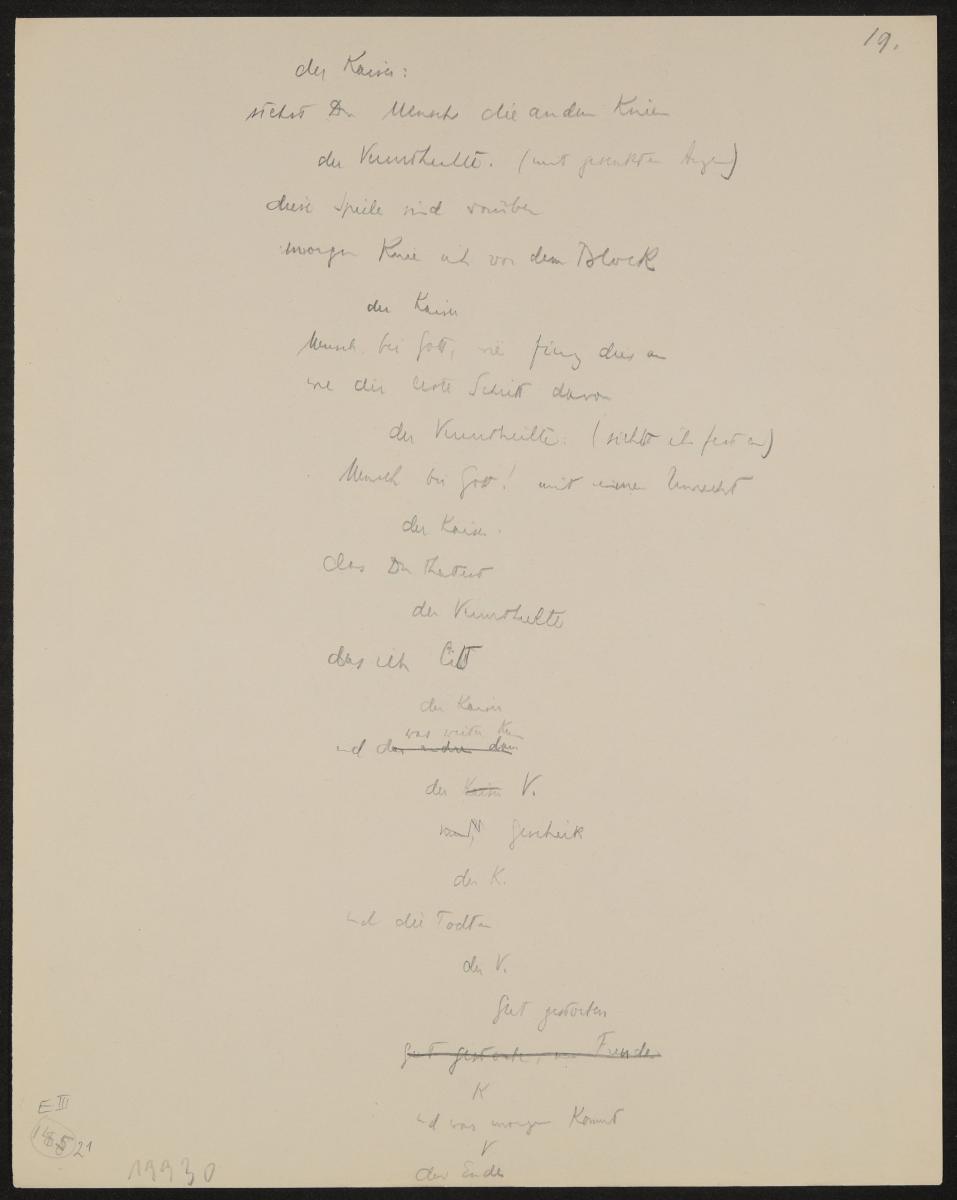 19.
der Kaiser:
siehst Du Mensch die andern Knien
der Verurtheilte. (mit gesenkten Augen)
diese Spiele sind vorüber
morgen Knie ich vor dem Block
der Kaiser
Mensch bei Gott, wie fing dies an
wie der erste Schritt davon
der Verurtheilte: (sieht ihn fest an)
Mensch bei Gott! mit einem Unrecht
der Kaiser.
das Du thatest
der Verurtheilte
das ich litt
der Kaiser
was weiter Kam
und das andre dann
der Kaiser V.
Geschick
der K.
und die Todten
der V.
Gut gestorben
gut gestorben, Freunde
K
und was morgen Kommt
V
das Ende
E III
21
19930